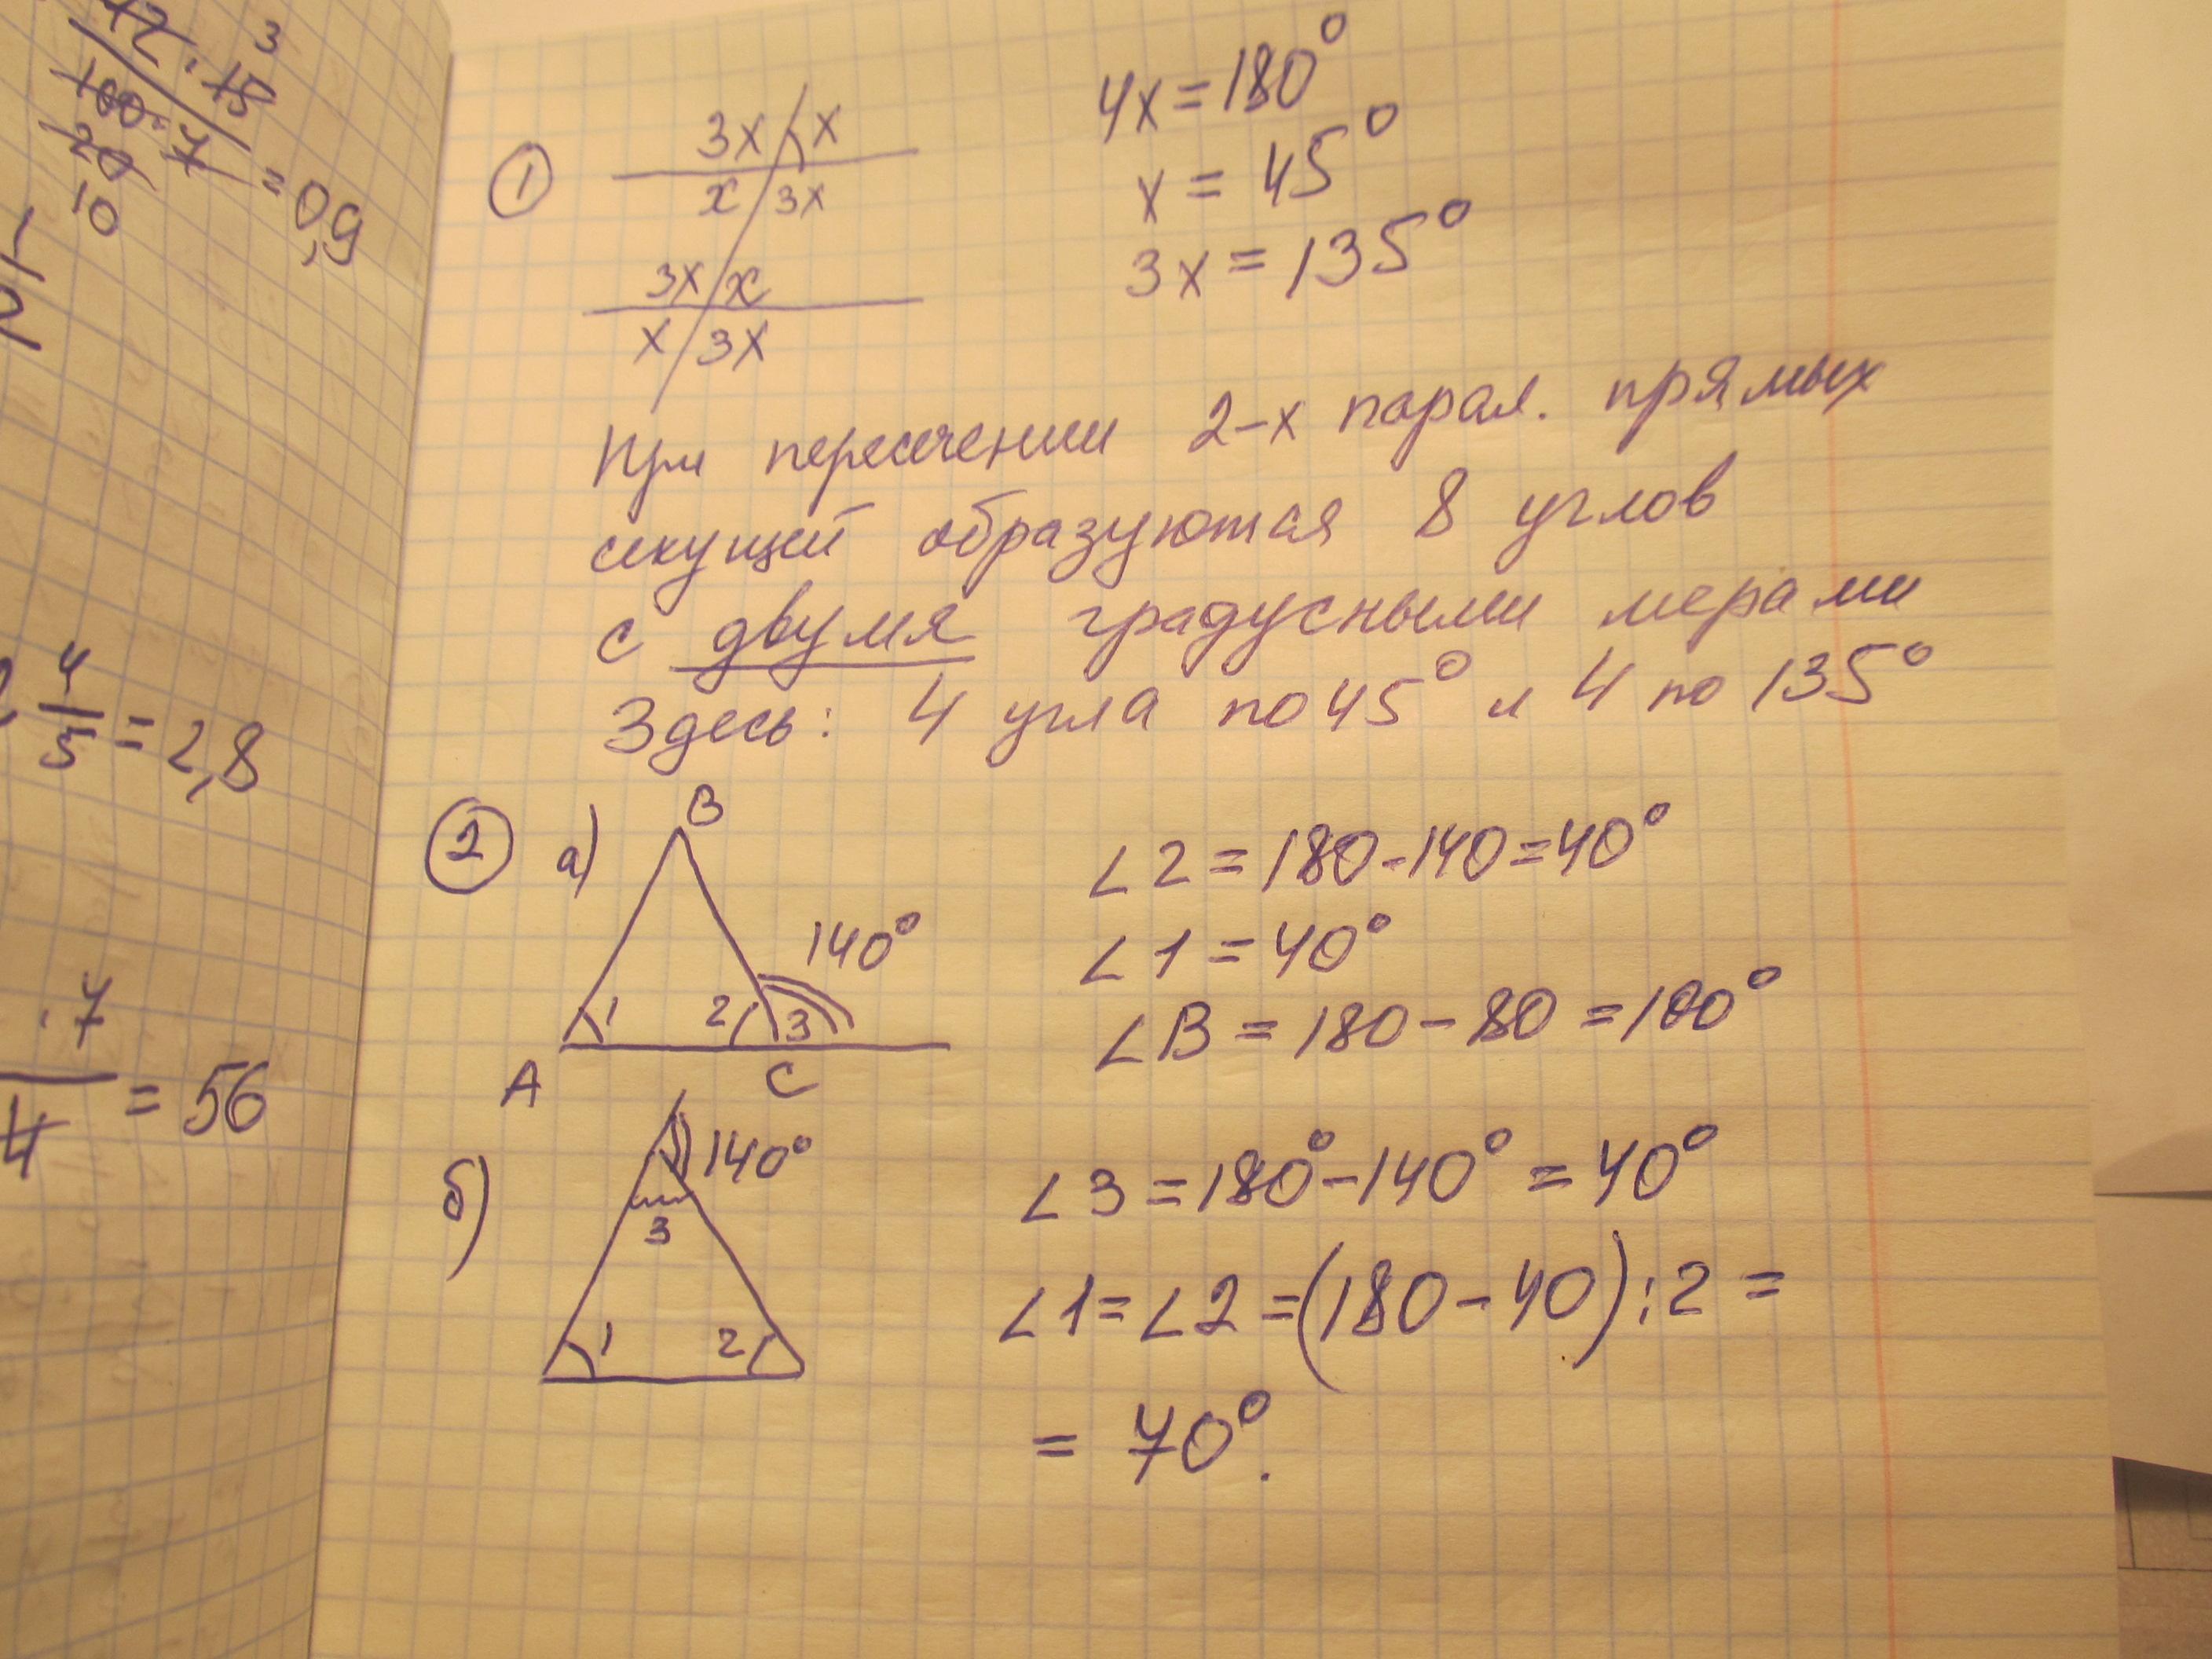 42 · 15 3
100 · 7 = 0,9
20
10
4/5 = 2,8
· 7
4 = 56
1
3x x
x 3x
3x x
x 3x
4x = 180°
x = 45°
3x = 135°
При пересечении 2-х парал. прямых
секущей образуются 8 углов
с двумя градусными мерами
Здесь: 4 угла по 45° и 4 по 135°
2 а) B
140°
1 2 3
A C
∠2 = 180 - 140 = 40°
∠1 = 40°
∠B = 180 - 80 = 100°
б) 140°
3
1 2
∠3 = 180° - 140° = 40°
∠1 = ∠2 = (180 - 40) : 2 =
= 70°.